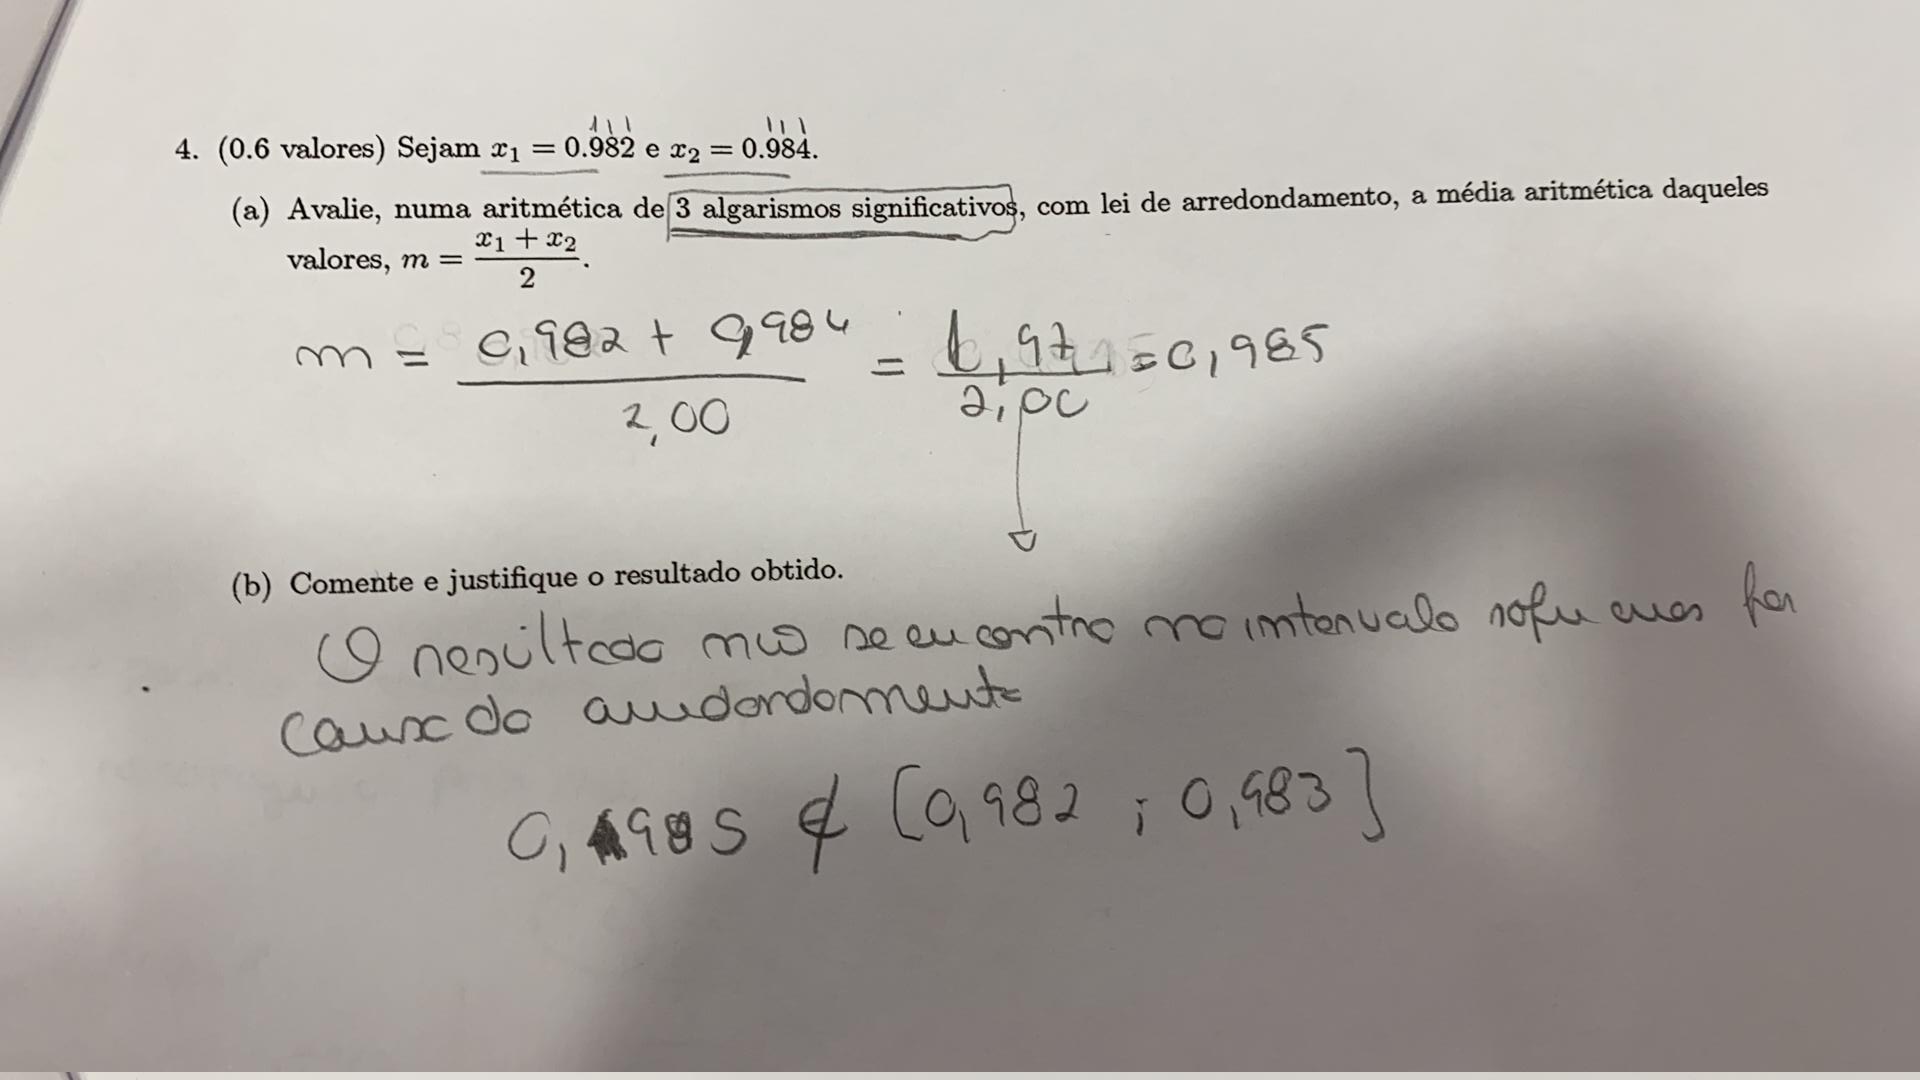 4. (0.6 valores) Sejam x₁ = 0.982 e x₂ = 0.984.
(a) Avalie, numa aritmética de 3 algarismos significativos, com lei de arredondamento, a média aritmética daqueles
valores, m = (x₁ + x₂)/2.
m = (0,982 + 0,984)/2,00 = 1,97/2,00 = 0,985
(b) Comente e justifique o resultado obtido.
O resultado não se encontra no intervalo
causa do arredondamento
0,985 ∉ [0,982 ; 0,983]